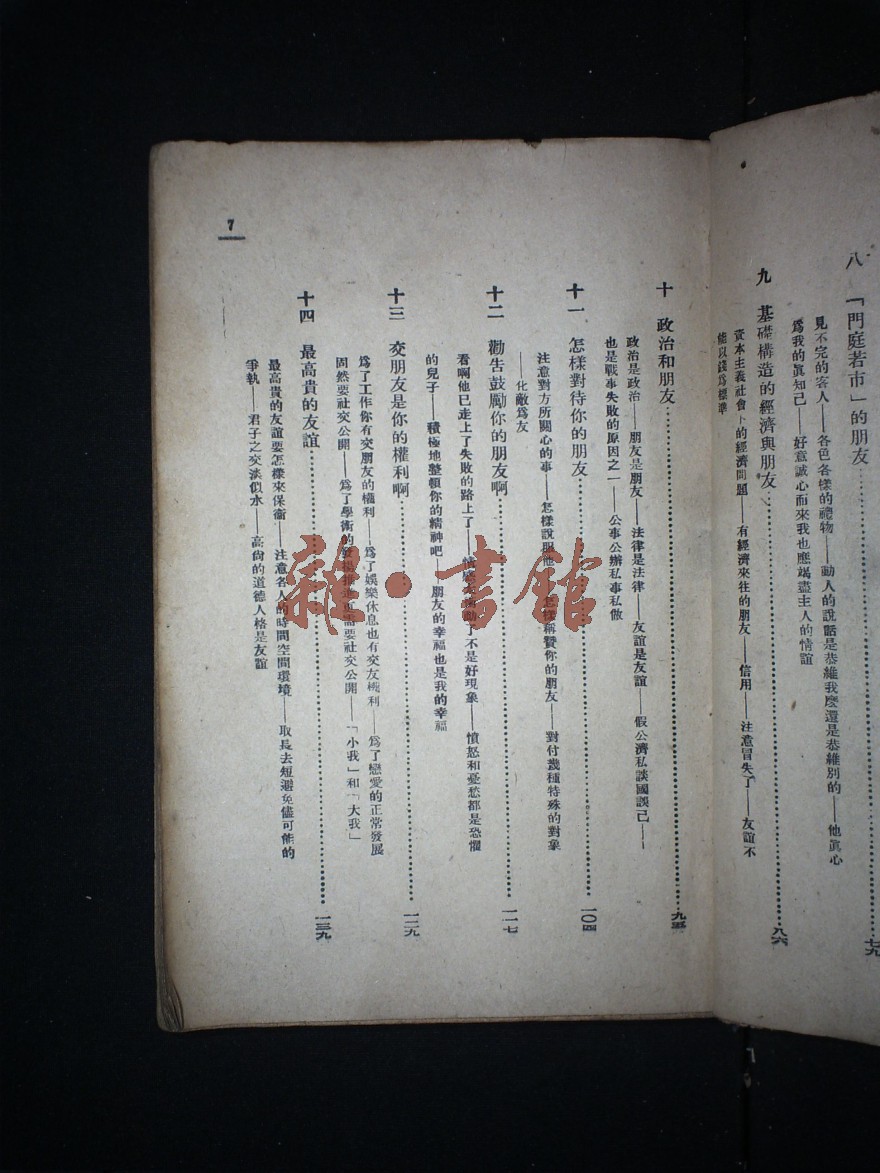 八 「門庭若市」的朋友…………七九
見不完的客人——各色各樣的禮物——動人的說話是恭維我麼還是恭維別的——他眞心
爲我的眞知己——好意誠心而來我也應竭盡主人的情誼
九 基礎構造的經濟與朋友…………八六
資本主義社會下的經濟問題——有經濟來往的朋友——信用——注意冒失了——友誼不
能以錢爲標準
十 政治和朋友…………九五
政治是政治——朋友是朋友——法律是法律——友誼是友誼——假公濟私談國誤己——
也是戰事失敗的原因之一——公事公辦私事私做
十一 怎樣對待你的朋友…………一〇四
注意對方所關心的事——怎樣說服他——怎樣稱贊你的朋友——對付幾種特殊的對象
——化敵爲友
十二 勸告鼓勵你的朋友啊…………一一七
看啊他已走上了失敗的路上了——情感太衝動了不是好現象——憤怒和憂愁都是恐懼
的兒子——積極地整頓你的精神吧——朋友的幸福也是我的幸福
十三 交朋友是你的權利啊…………一二九
爲了工作你有交朋友的權利——爲了娛樂休息也有交友權利——爲了戀愛的正常發展
固然要社交公開——爲了學術的發揚推進更需要社交公開——「小我」和「大我」
十四 最高貴的友誼…………一三九
最高貴的友誼要怎樣來保衞——注意各人的時間空間環境——取長去短避免儘可能的
爭執——君子之交淡似水——高尙的道德人格是友誼
7
雜·書館